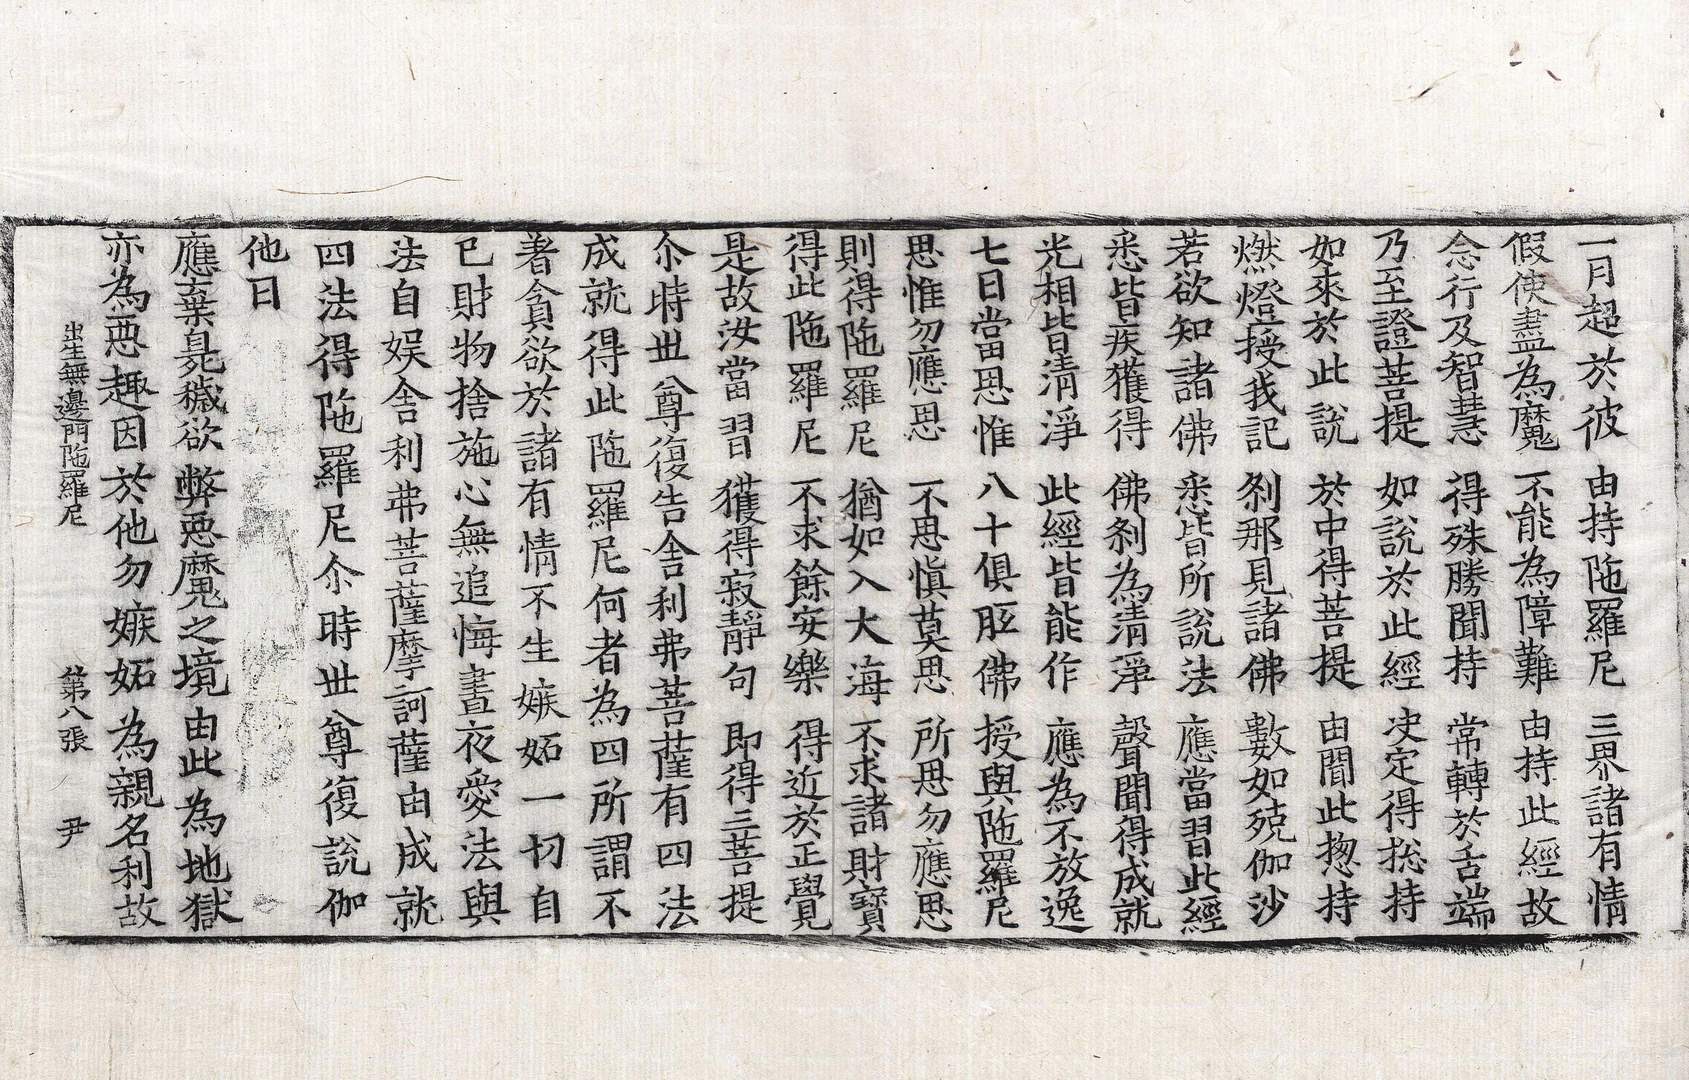 一月超於彼　由持陁羅尼　三界諸有情
假使盡為魔　不能為障難　由持此經故
念行及智慧　得殊勝聞持　常轉於舌端
乃至證菩提　如說於此經　决定得捴持
如來於此說　於中得菩提　由聞此捴持
燃燈授我記　刹那見諸佛　數如殑伽沙
若欲知諸佛　悉皆所說法　應當習此經
悉皆疾獲得　佛刹為清淨　聲聞得成就
光相皆清淨　此經皆能作　應為不放逸
七日當思惟　八十俱胝佛　授與陁羅尼
思惟勿應思　不思愼莫思　所思勿應思
則得陁羅尼　猶如入大海　不求諸財寶
得此陁羅尼　不求餘安樂　得近於正覺
是故汝當習　獲得寂靜句　即得三菩提
尒時世尊復告舍利弗菩薩有四法
成就得此陁羅尼何者為四所謂不
著貪欲於諸有情不生嫉妬一切自
已財物捨施心無追悔晝夜愛法與
法自娛舍利弗菩薩摩訶薩由成就
四法得陁羅尼尒時世尊復說伽
他曰
應棄臭穢欲　弊惡魔之境　由此為地獄
亦為惡趣因　於他勿嫉妬　為親名利故
出生無邊門陁羅尼　第八張　尹